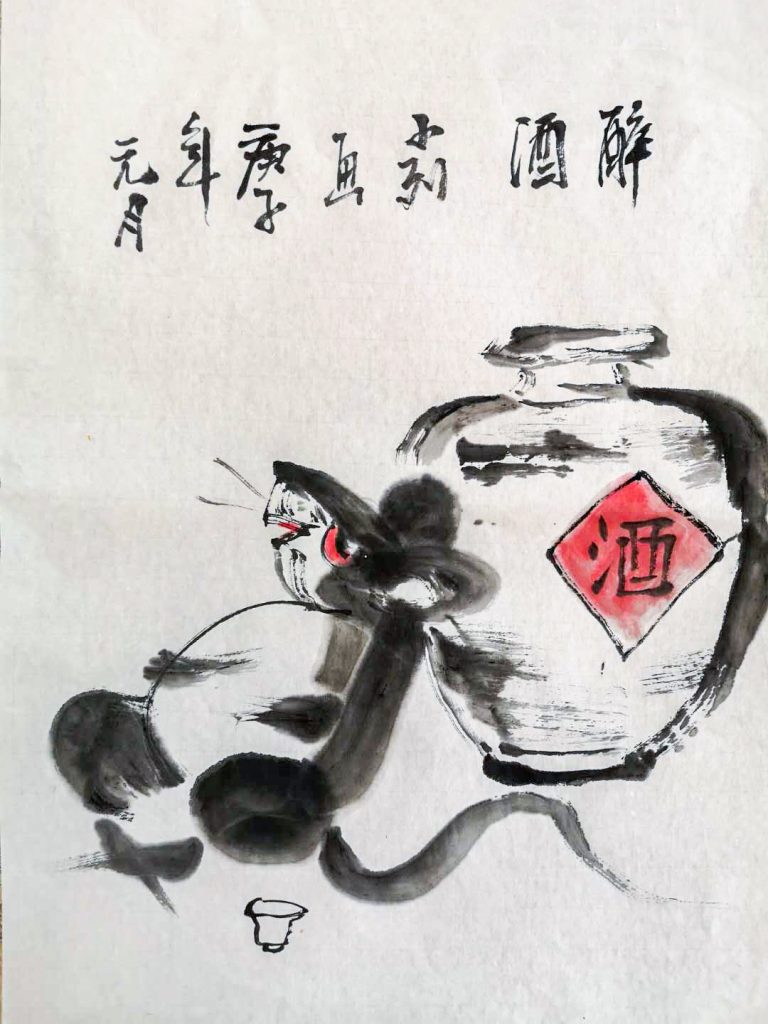 醉酒 小 画 庚子年元月
酒